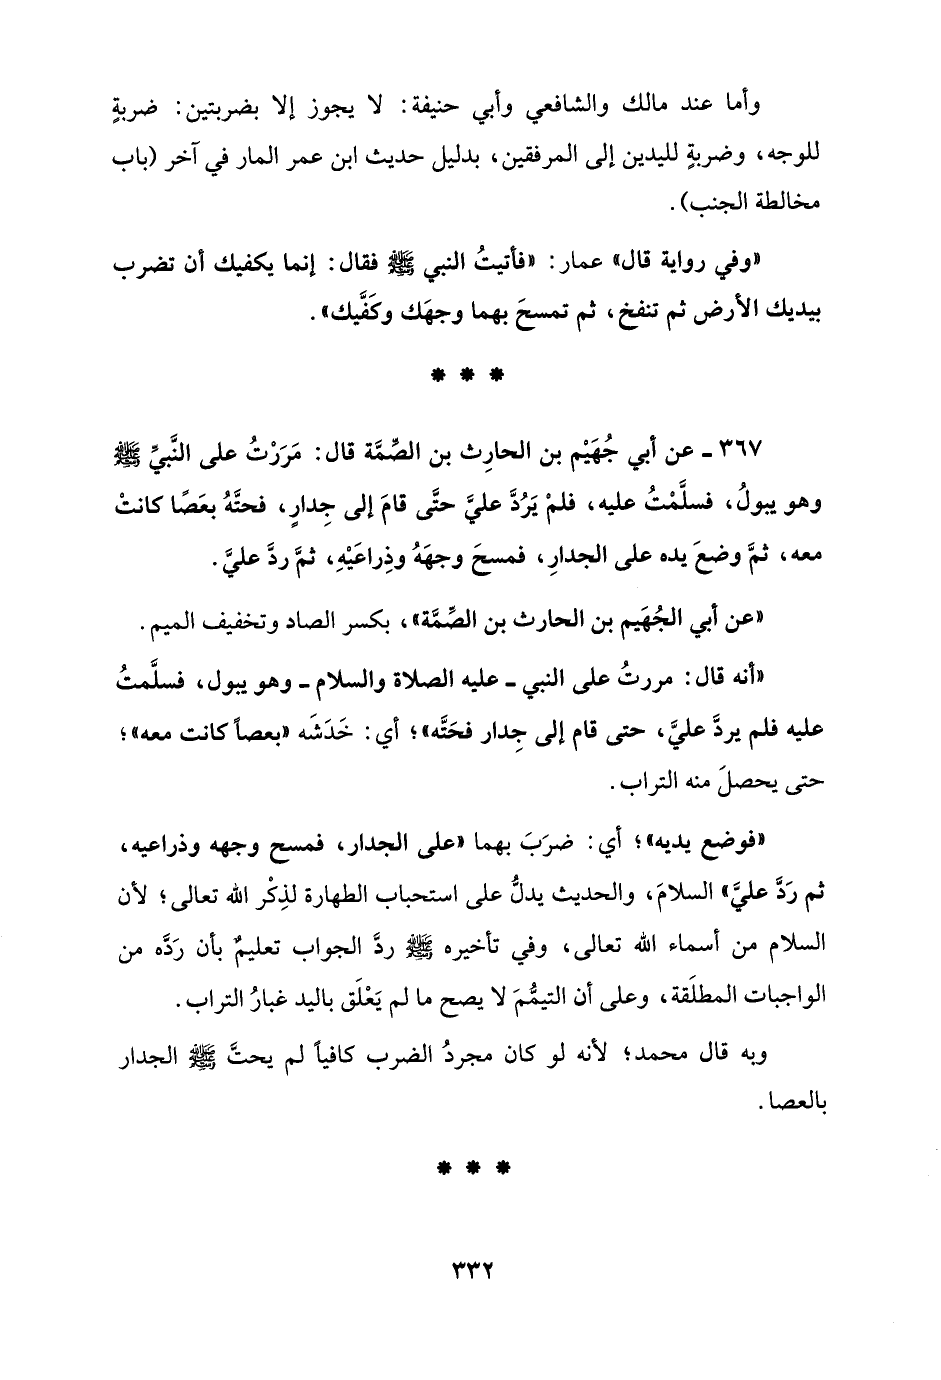 وأما عند مالك والشافعي وأبي حنيفة: لا يجوز إلا بضربتين: ضربةٍ
للوجه، وضربةٍ لليدين إلى المرفقين، بدليل حديث ابن عمر المار في آخر (باب
مخالطة الجنب).
«وفي رواية قال» عمار: «فأتيتُ النبي ﷺ فقال: إنما يكفيك أن تضرب
بيديك الأرض ثم تنفخ، ثم تمسحَ بهما وجهَك وكَفَّيك».
* * *
٣٦٧ ـ عن أبي جُهَيْم بن الحارِث بن الصِّمَّة قال: مَرَرْتُ على النَّبيِّ ﷺ
وهو يبولُ، فسلَّمْتُ عليه، فلمْ يَرُدَّ عليَّ حتَّى قامَ إلى جِدارٍ، فحتَّهُ بعَصًا كانتْ
معه، ثمَّ وضعَ يده على الجدارِ، فمسحَ وجهَهُ وذِراعَيْهِ، ثمَّ ردَّ عليَّ.
«عن أبي الجُهَيم بن الحارث بن الصِّمَّة»، بكسر الصاد وتخفيف الميم.
«أنه قال: مررتُ على النبي ـ عليه الصلاة والسلام ـ وهو يبول، فسلَّمتُ
عليه فلم يردَّ عليَّ، حتى قام إلى جِدار فحَتَّه»؛ أي: خَدَشَه «بعصاً كانت معه»؛
حتى يحصلَ منه التراب.
«فوضع يديه»؛ أي: ضرَبَ بهما «على الجدار، فمسح وجهه وذراعيه،
ثم رَدَّ عليَّ» السلامَ، والحديث يدلُّ على استحباب الطهارة لذِكْر الله تعالى؛ لأن
السلام من أسماء الله تعالى، وفي تأخيره ﷺ ردَّ الجواب تعليمٌ بأن رَدَّه من
الواجبات المطلَقة، وعلى أن التيمُّمَ لا يصح ما لم يَعْلَق باليد غبارُ التراب.
وبه قال محمد؛ لأنه لو كان مجردُ الضرب كافياً لم يحتَّ ﷺ الجدار
بالعصا.
* * *
٣٣٢